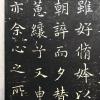 雖好脩姱以
朝誶而夕替
蕙纕兮又申
亦余心之所